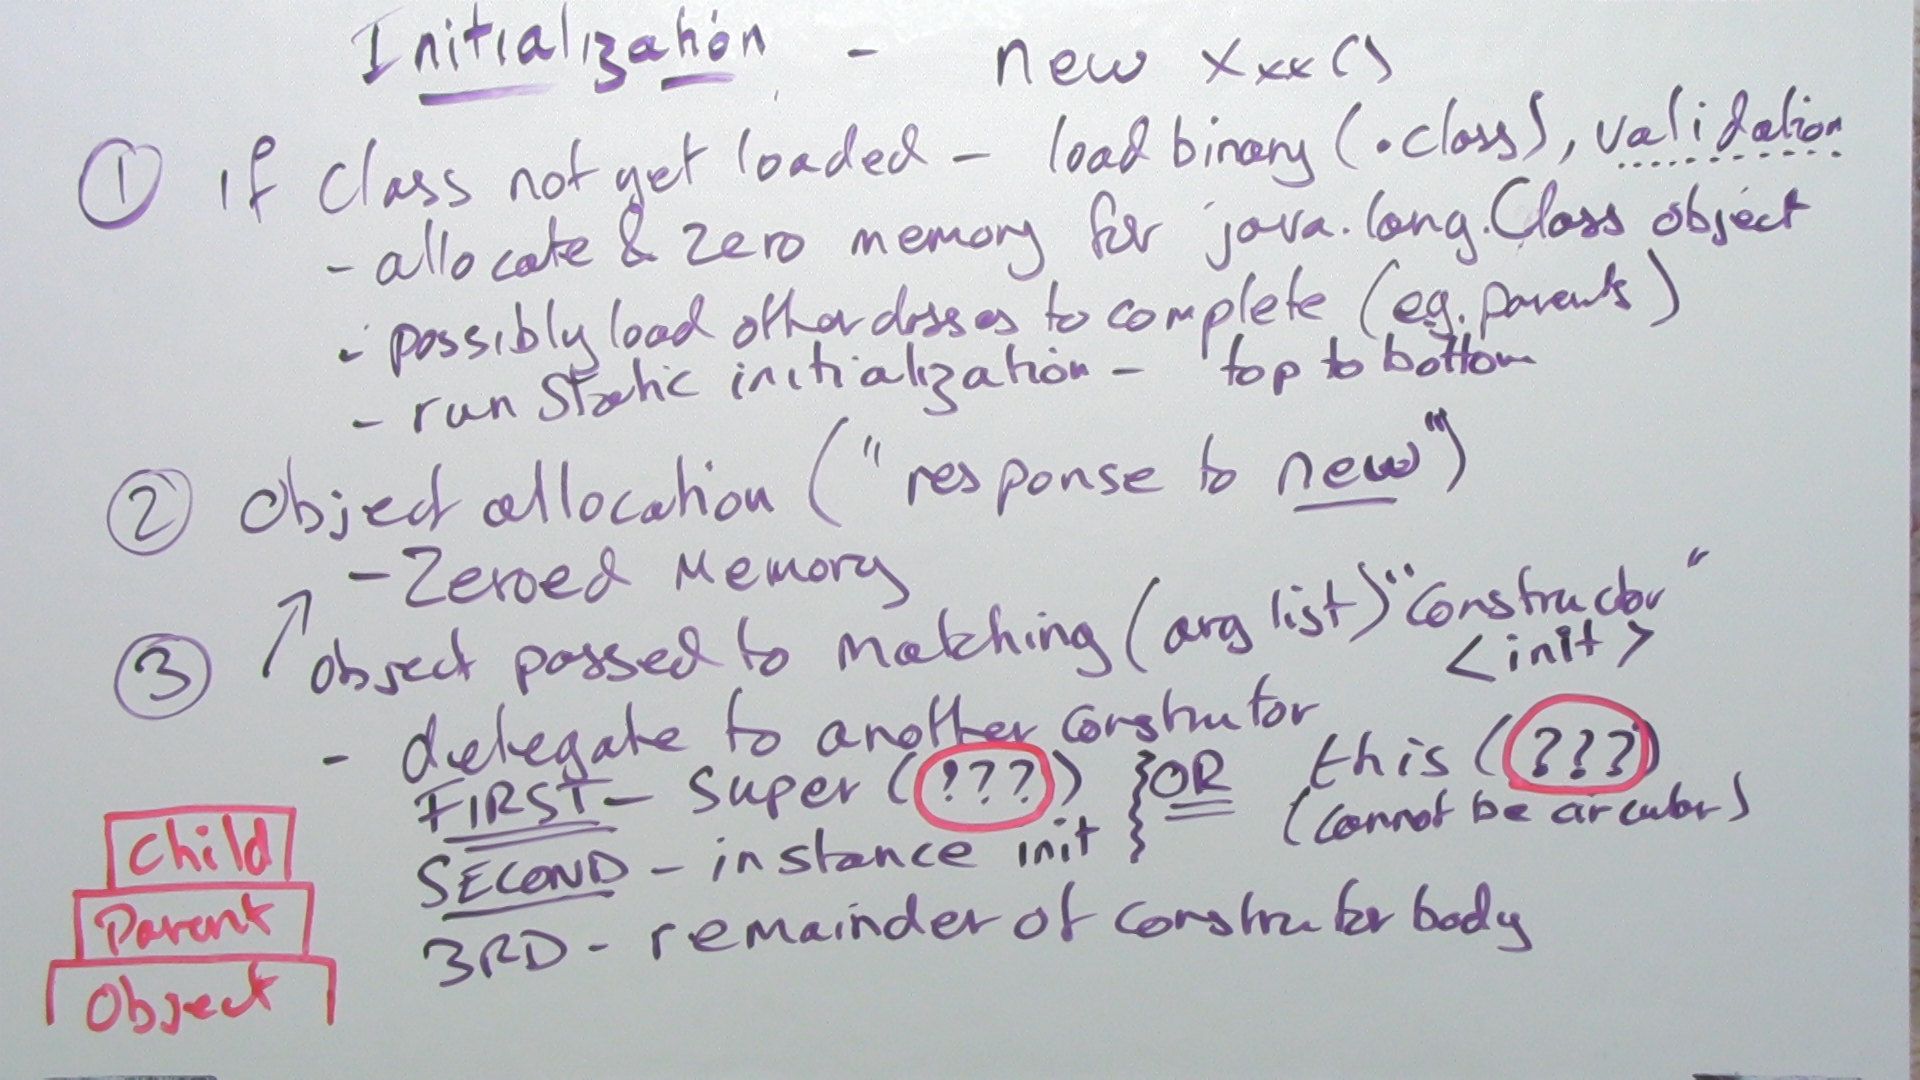 Initialization - new Xxx()
① if class not yet loaded - load binary (.class), validation
- allocate & zero memory for java.lang.Class object
- possibly load other classes to complete (eg. parents)
- run static initialization - top to bottom
② Object allocation ("response to new")
- Zeroed Memory
③ object passed to matching (arg list) "constructor"
<init>
- delegate to another constructor
FIRST - super (???) } OR this (???)
SECOND - instance init (cannot be circular)
3RD - remainder of constructor body
Child
Parent
Object